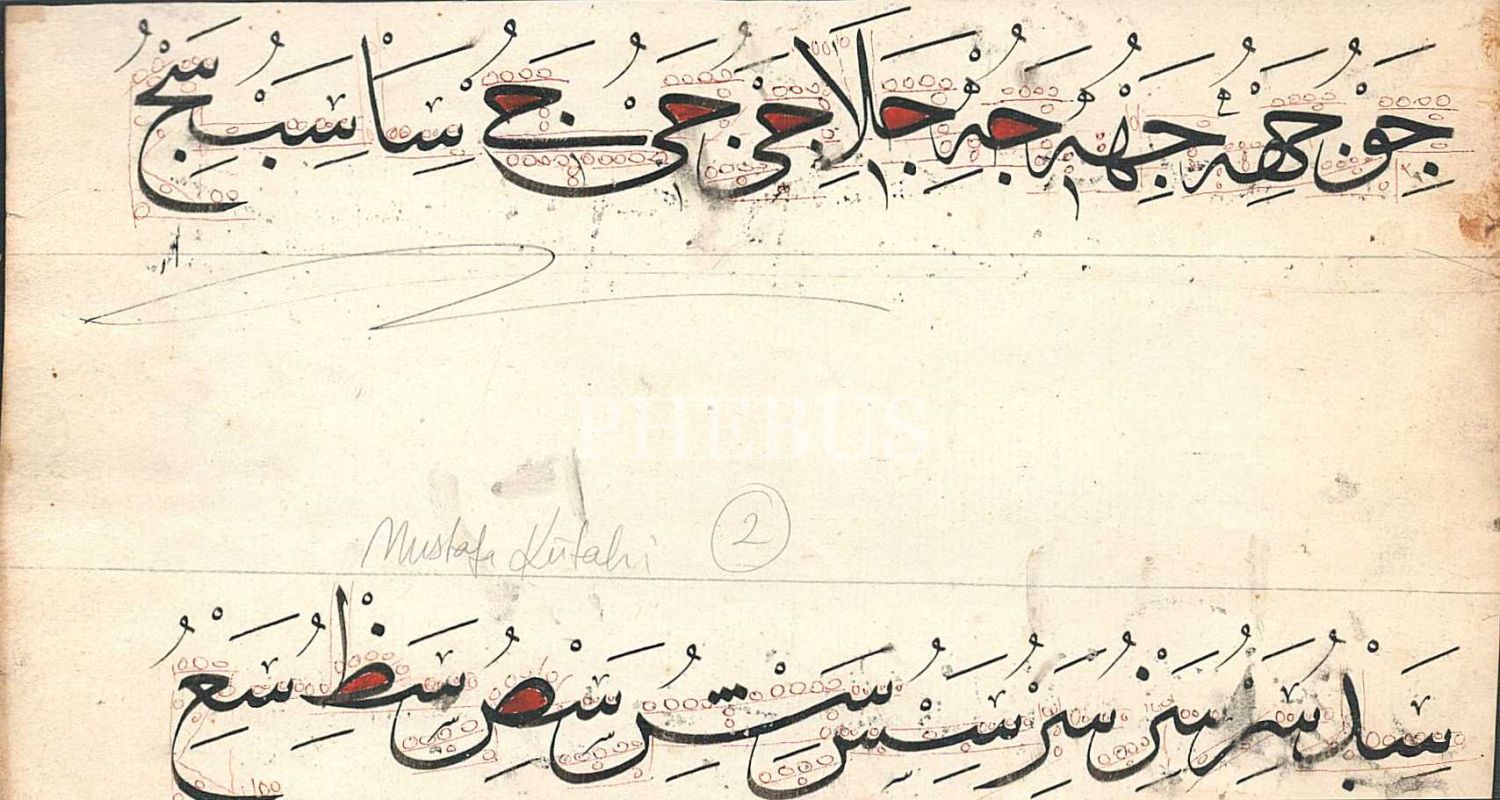 جو جهه جهه جه جلا جى جى جى سا سب سج
PHEBUS
Mustafa Kütahi 2
سر سر سر سس سش سص سظ سع